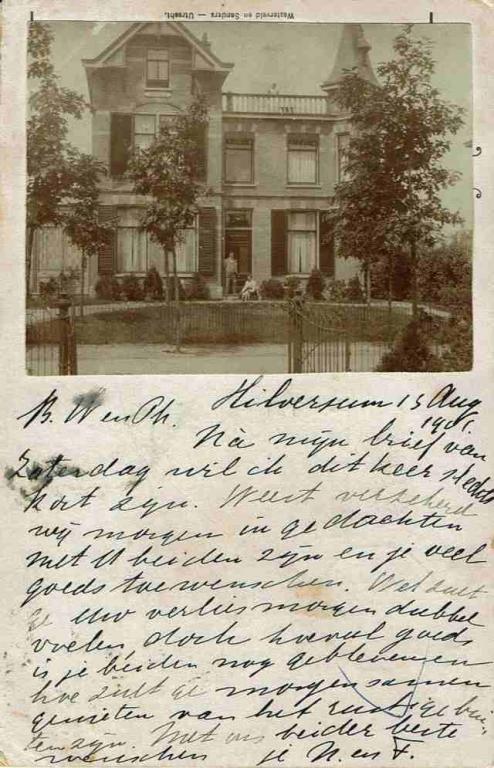 Westerveld en Sanders — Utrecht.
B. W en Ph. Hilversum 13 Aug
1901.
Nà mijn brief van
Zaterdag wil ik dit keer slechts
kort zijn. Weest verzekerd
wij morgen in gedachten
met U beiden zijn en je veel
goeds toewenschen. Wel zult
ge Uw verlies morgen dubbel
voelen doch hoeveel goeds
is je beiden nog gebleven en
hoe zult ge morgen samen
genieten van het rustige bui-
ten zijn. Met ons beider beste
wenschen je N. en F.